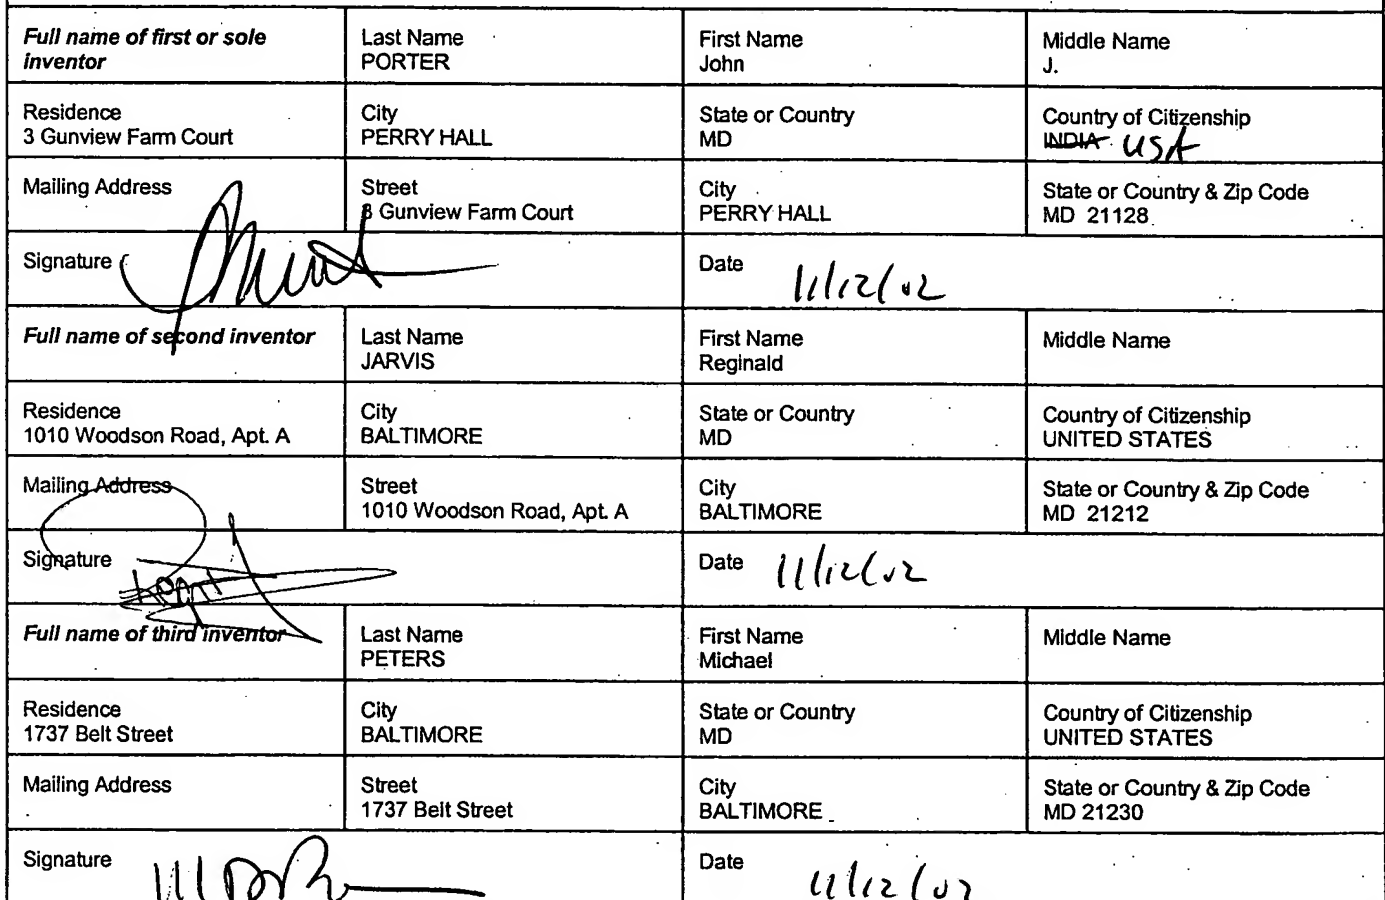 Full name of first or sole inventor
Last Name
PORTER
First Name
John
Middle Name
J.
Residence
3 Gunview Farm Court
City
PERRY HALL
State or Country
MD
Country of Citizenship
INDIA USA
Mailing Address
Street
3 Gunview Farm Court
City
PERRY HALL
State or Country & Zip Code
MD 21128
Signature
Date 11/12/02
Full name of second inventor
Last Name
JARVIS
First Name
Reginald
Middle Name
Residence
1010 Woodson Road, Apt. A
City
BALTIMORE
State or Country
MD
Country of Citizenship
UNITED STATES
Mailing Address
Street
1010 Woodson Road, Apt. A
City
BALTIMORE
State or Country & Zip Code
MD 21212
Signature
Date 11/12/02
Full name of third inventor
Last Name
PETERS
First Name
Michael
Middle Name
Residence
1737 Belt Street
City
BALTIMORE
State or Country
MD
Country of Citizenship
UNITED STATES
Mailing Address
Street
1737 Belt Street
City
BALTIMORE
State or Country & Zip Code
MD 21230
Signature
Date 11/12/02